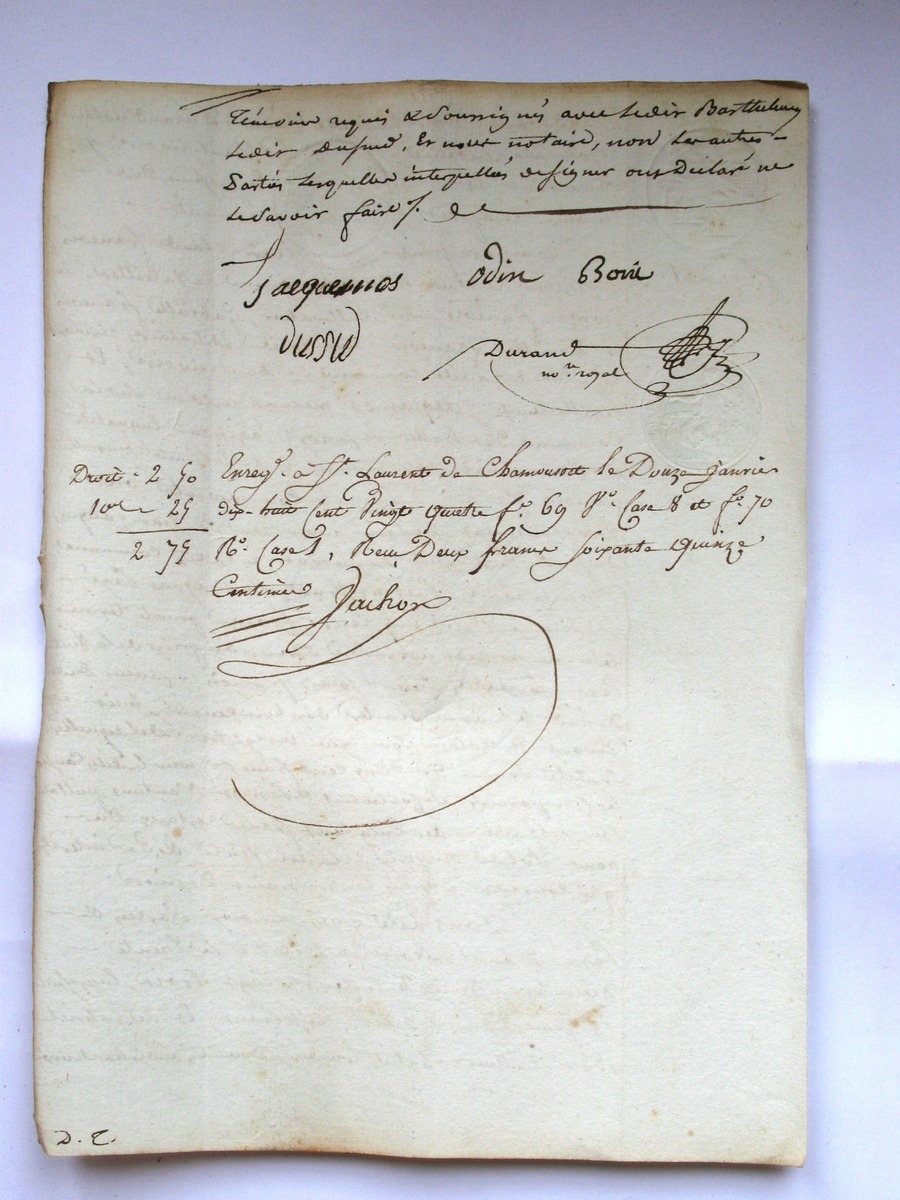 témoins requis & soussignés avec ledit Barthelemy
ledit dussud, Et nous notaire, non les autres
Parties lesquelles interpellés de signer ont Déclaré ne
le savoir faire /.
Jacquemos odin Bovit
dussud
Durand
no.re royal
Droit - 2 50
10e - 25
2 75
Enreg. à St. Laurent de Chamousset le Douze janvier
dix-huit Cent Vingt quatre f.o 69 V.o Case 8 et f.o 70
R.o Case 1, Reçu Deux francs Soixante Quinze
Centimes
D. T.